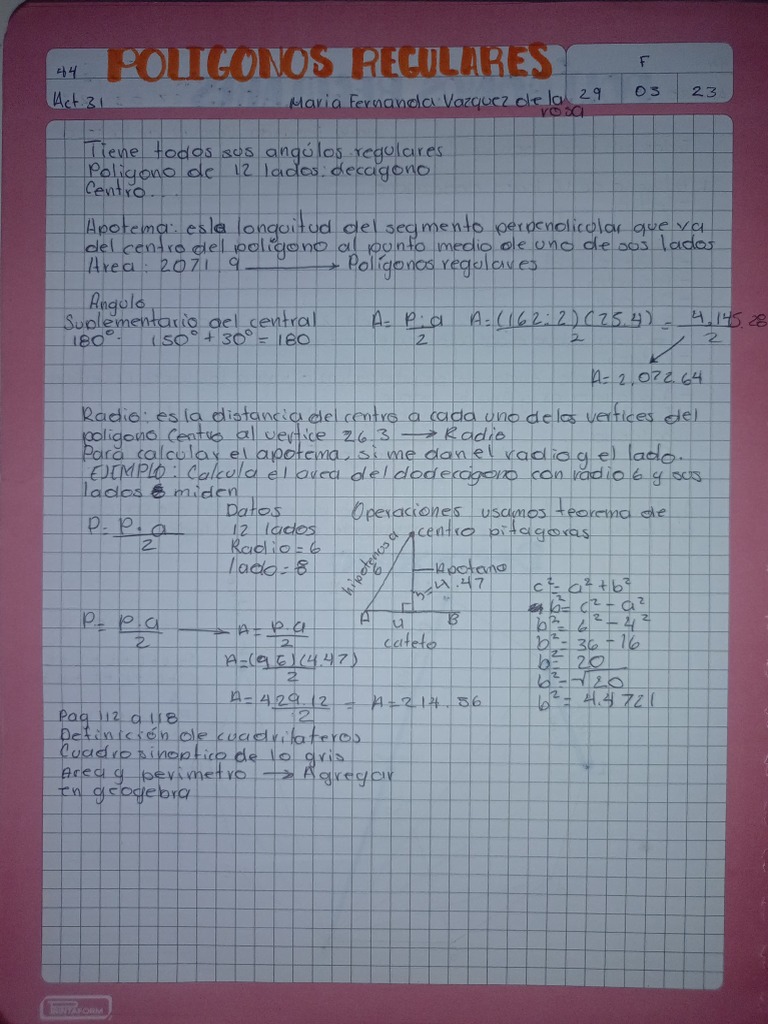 44 POLIGONOS REGULARES F
Act. 31 Maria Fernanda Vazquez de la rosa 29 03 23
Tiene todos sus angúlos regulares
Poligono de 12 lados: decagono
Centro...
Apotema: es la longuitud del segmento perpendicular que va
del centro del poligono al punto medio de uno de sus lados
Area: 2071.9 → Polígonos regulares
Angulo
Suplementario del central
180°: 150° + 30° = 180
A = p·a / 2 A = (162.2)(25.4) / 2 = 4,145.28 / 2
A = 2,072.64
Radio: es la distancia del centro a cada uno de los vertices del
poligono Centro al vertice 26.3 → Radio
Para calcular el apotema, si me dan el radio y el lado.
EJEMPLO: Calcula el area del dodecágono con radio 6 y sus
lados 8 miden
Datos
12 lados
Radio = 6
lado = 8
P = p·a / 2
Operaciones usamos teorema de
centro pitagoras
hipotenusa
6
Apotano
4.47
A 4 B
cateto
c² = a² + b²
b² = c² - a²
b² = 6² - 4²
b² = 36 - 16
b² = 20
b² = √20
b² = 4.4721
P = p·a / 2 → A = p·a / 2
A = (96)(4.47) / 2
A = 429.12 / 2 = A = 214.56
Pag 112 a 118
Definición de cuadrilateros
Cuadro sinoptico de lo gris
Area y perimetro → Agregar
En geogebra
PRINTAFORM